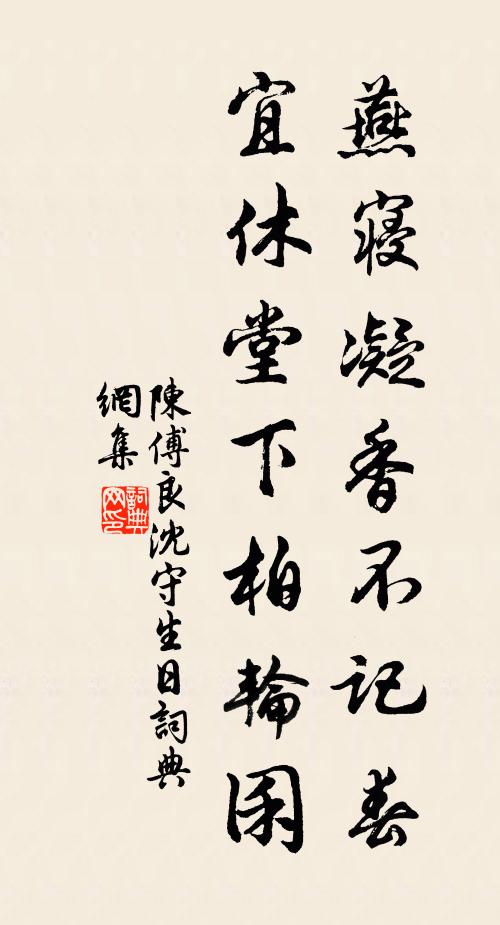 燕寝凝香不记春
宜休堂下柏輪囷
陳傅良沈守生日詞典
網集
詞典
网印